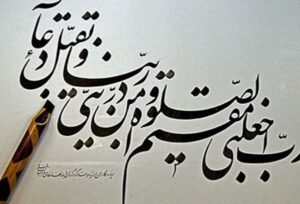 رب اجعلنی مقیم الصلوة ومن ذریتی ربنا وتقبل دعاء